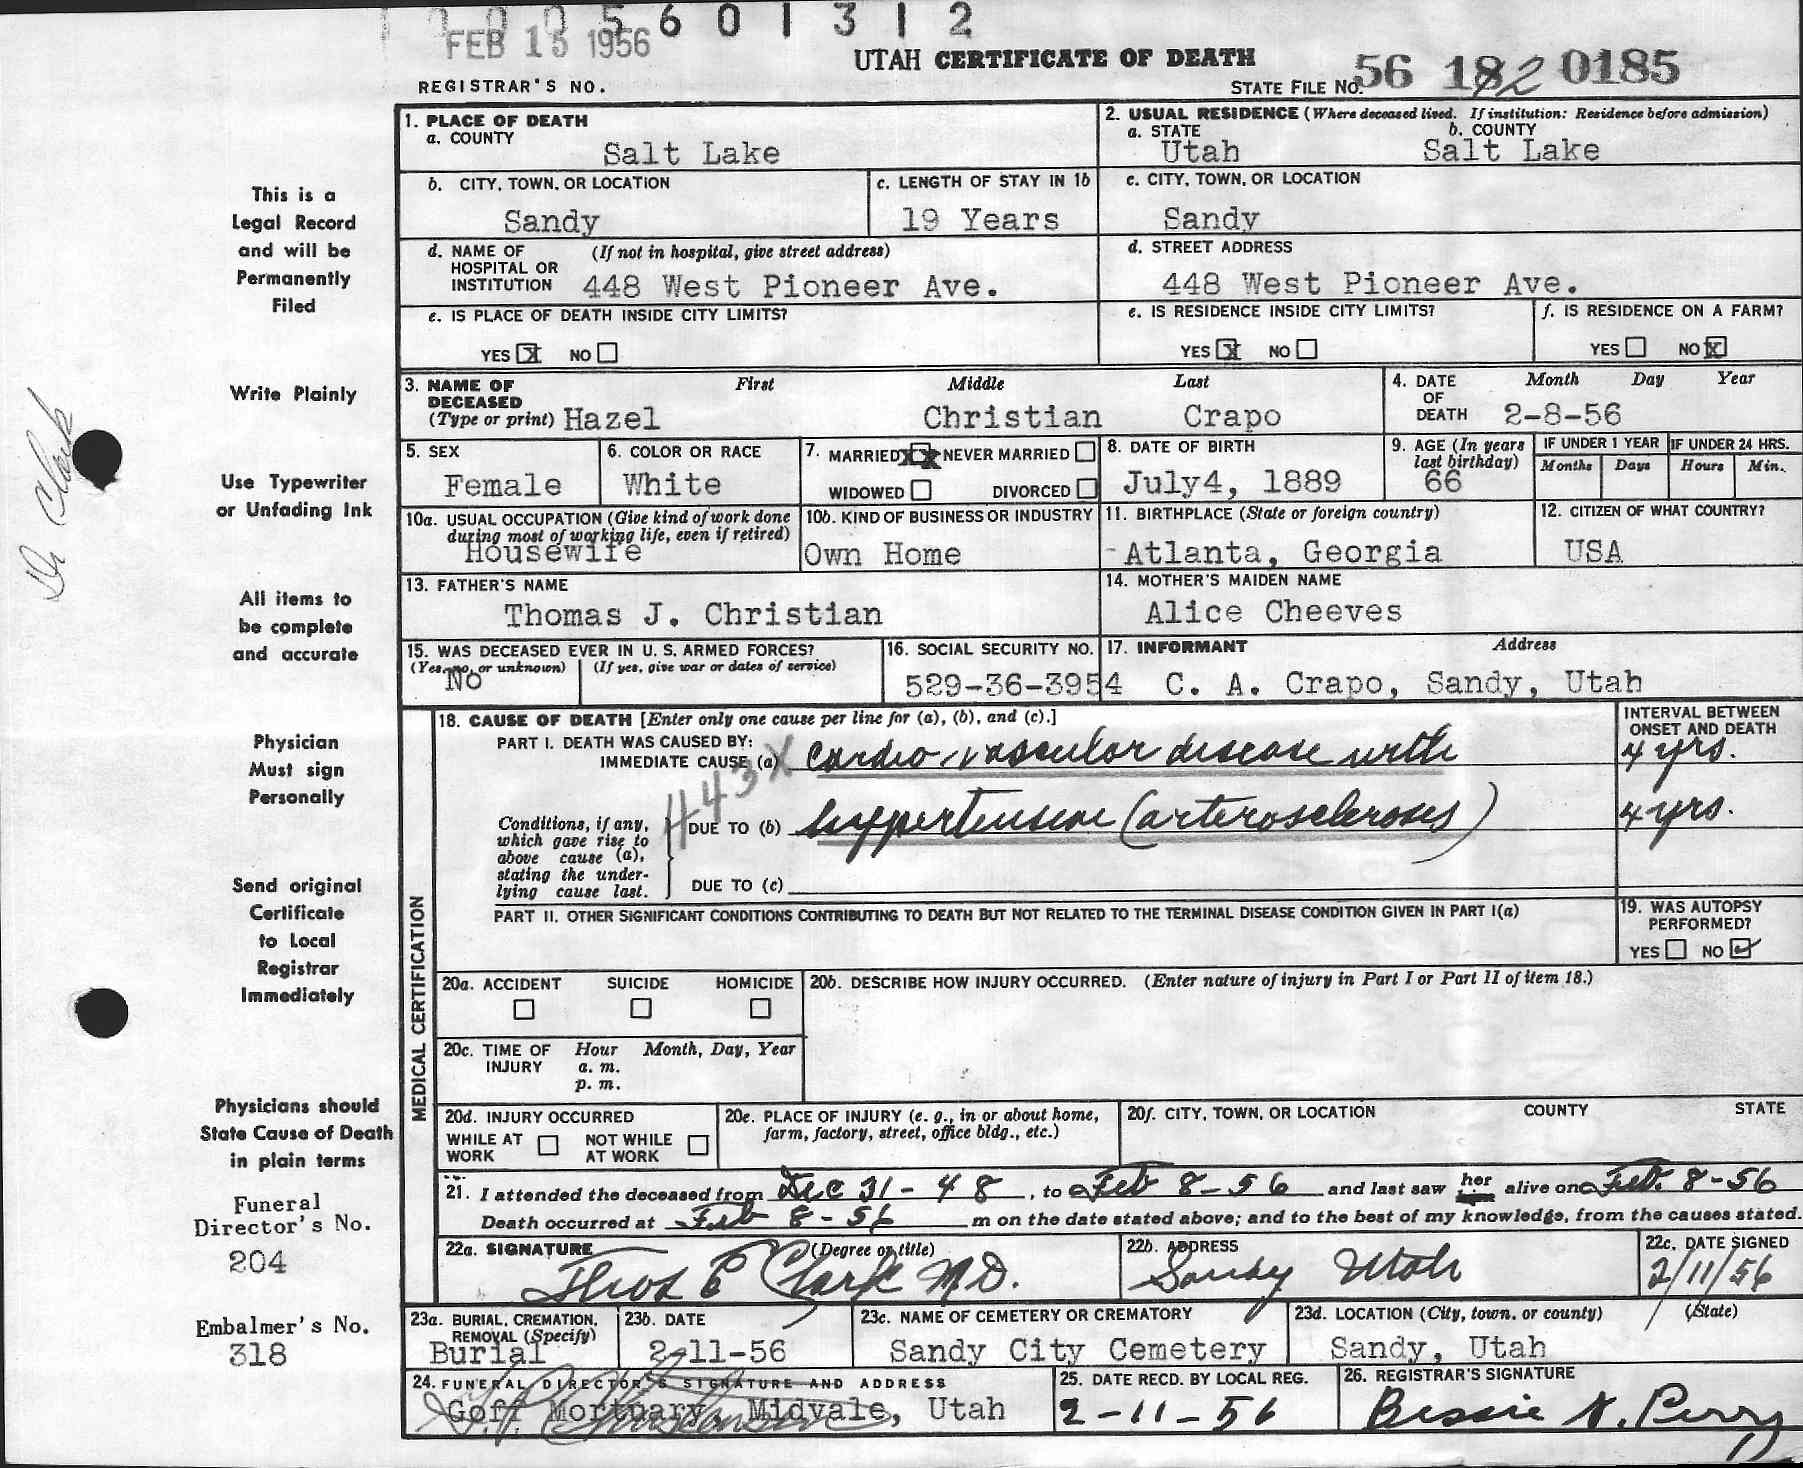 1 0 0 5 6 0 1 3 1 2
FEB 15 1956
UTAH CERTIFICATE OF DEATH
REGISTRAR'S NO.
STATE FILE NO. 56 182 0185
1. PLACE OF DEATH
a. COUNTY
Salt Lake
2. USUAL RESIDENCE (Where deceased lived. If institution: Residence before admission)
a. STATE b. COUNTY
Utah Salt Lake
b. CITY, TOWN, OR LOCATION
Sandy
c. LENGTH OF STAY IN 1b
19 Years
c. CITY, TOWN, OR LOCATION
Sandy
d. NAME OF (If not in hospital, give street address)
HOSPITAL OR
INSTITUTION 448 West Pioneer Ave.
d. STREET ADDRESS
448 West Pioneer Ave.
e. IS PLACE OF DEATH INSIDE CITY LIMITS?
YES X NO
e. IS RESIDENCE INSIDE CITY LIMITS?
YES X NO
f. IS RESIDENCE ON A FARM?
YES NO X
3. NAME OF First Middle Last
DECEASED
(Type or print) Hazel Christian Crapo
4. DATE Month Day Year
OF
DEATH 2-8-56
5. SEX
Female
6. COLOR OR RACE
White
7. MARRIED XX NEVER MARRIED
WIDOWED DIVORCED
8. DATE OF BIRTH
July4, 1889
9. AGE (In years
last birthday)
66
IF UNDER 1 YEAR
Months Days
IF UNDER 24 HRS.
Hours Min.
10a. USUAL OCCUPATION (Give kind of work done
during most of working life, even if retired)
Housewife
10b. KIND OF BUSINESS OR INDUSTRY
Own Home
11. BIRTHPLACE (State or foreign country)
Atlanta, Georgia
12. CITIZEN OF WHAT COUNTRY?
USA
13. FATHER'S NAME
Thomas J. Christian
14. MOTHER'S MAIDEN NAME
Alice Cheeves
15. WAS DECEASED EVER IN U. S. ARMED FORCES?
(Yes, no, or unknown) (If yes, give war or dates of service)
No
16. SOCIAL SECURITY NO.
529-36-3954
17. INFORMANT Address
C. A. Crapo, Sandy, Utah
MEDICAL CERTIFICATION
18. CAUSE OF DEATH [Enter only one cause per line for (a), (b), and (c).]
PART I. DEATH WAS CAUSED BY:
IMMEDIATE CAUSE (a) Cardio-vascular disease with
443X
Conditions, if any,
which gave rise to
above cause (a),
stating the under-
lying cause last.
DUE TO (b) hyppertensive (arterosclerosis)
DUE TO (c)
INTERVAL BETWEEN
ONSET AND DEATH
4 yrs.
4 yrs.
PART II. OTHER SIGNIFICANT CONDITIONS CONTRIBUTING TO DEATH BUT NOT RELATED TO THE TERMINAL DISEASE CONDITION GIVEN IN PART I(a)
19. WAS AUTOPSY
PERFORMED?
YES NO ✓
20a. ACCIDENT SUICIDE HOMICIDE
20b. DESCRIBE HOW INJURY OCCURRED. (Enter nature of injury in Part I or Part II of item 18.)
20c. TIME OF Hour Month, Day, Year
INJURY a. m.
p. m.
20d. INJURY OCCURRED
WHILE AT NOT WHILE
WORK AT WORK
20e. PLACE OF INJURY (e. g., in or about home,
farm, factory, street, office bldg., etc.)
20f. CITY, TOWN, OR LOCATION COUNTY STATE
21. I attended the deceased from Dec 31-48, to Feb 8-56 and last saw her alive on Feb. 8-56
Death occurred at Feb 8-56 m on the date stated above; and to the best of my knowledge, from the causes stated.
22a. SIGNATURE (Degree or title)
Thos E Clark M.D.
22b. ADDRESS
Sandy Utah
22c. DATE SIGNED
2/11/56
23a. BURIAL, CREMATION,
REMOVAL (Specify)
Burial
23b. DATE
2-11-56
23c. NAME OF CEMETERY OR CREMATORY
Sandy City Cemetery
23d. LOCATION (City, town, or county) (State)
Sandy, Utah
24. FUNERAL DIRECTOR'S SIGNATURE AND ADDRESS
Goff Mortuary, Midvale, Utah
25. DATE RECD. BY LOCAL REG.
2-11-56
26. REGISTRAR'S SIGNATURE
Bessie N. Perry
This is a
Legal Record
and will be
Permanently
Filed
Write Plainly
Dr Clark
Use Typewriter
or Unfading Ink
All items to
be complete
and accurate
Physician
Must sign
Personally
Send original
Certificate
to Local
Registrar
Immediately
Physicians should
State Cause of Death
in plain terms
Funeral
Director's No.
204
Embalmer's No.
318